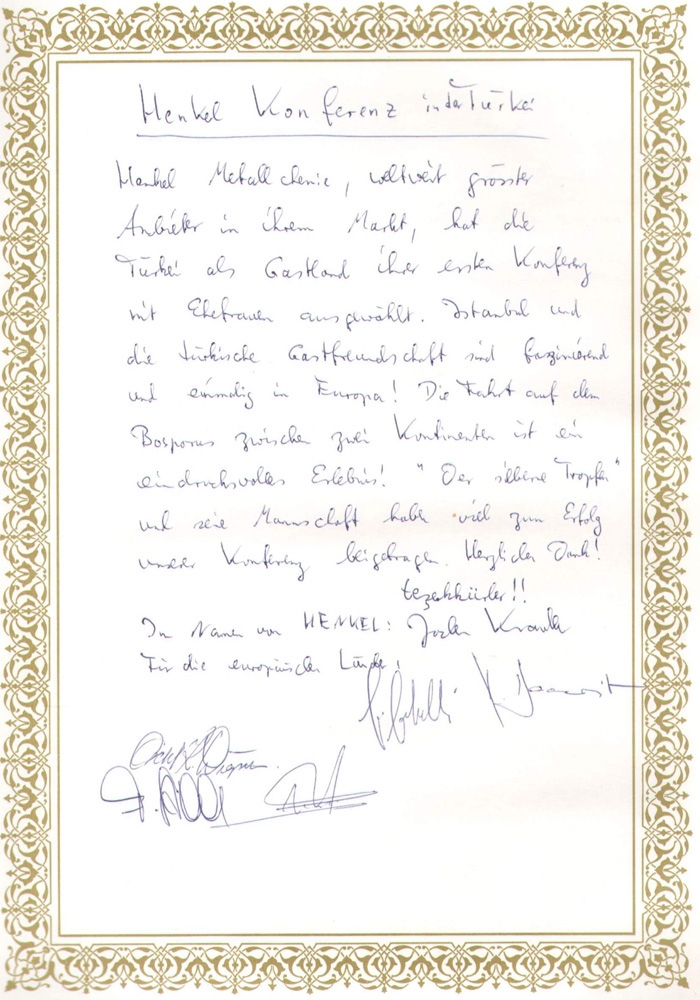 Henkel Konferenz in der Türkei
Henkel Metallchemie, weltweit grösster
Anbieter in ihrem Markt, hat die
Türkei als Gastland ihrer ersten Konferenz
mit Ehefrauen ausgewählt. Istanbul und
die türkische Gastfreundschaft sind faszinierend
und einmalig in Europa! Die Fahrt auf dem
Bosporus zwischen zwei Kontinenten ist ein
eindrucksvolles Erlebnis! "Der silberne Tropfen"
und seine Mannschaft haben viel zum Erfolg
unserer Konferenz beigetragen. Herzlichen Dank!
teşekkürler!!
Im Namen von HENKEL: Jochen
Für die europäischen Länder: